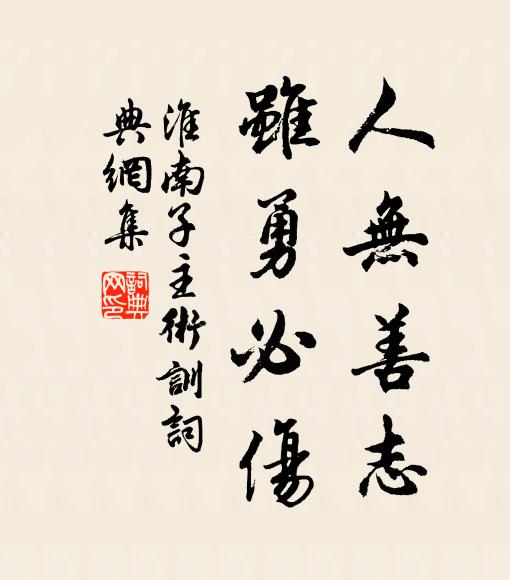 人無善志
雖勇必傷
淮南子主術訓詞
典網集
詞典
网印